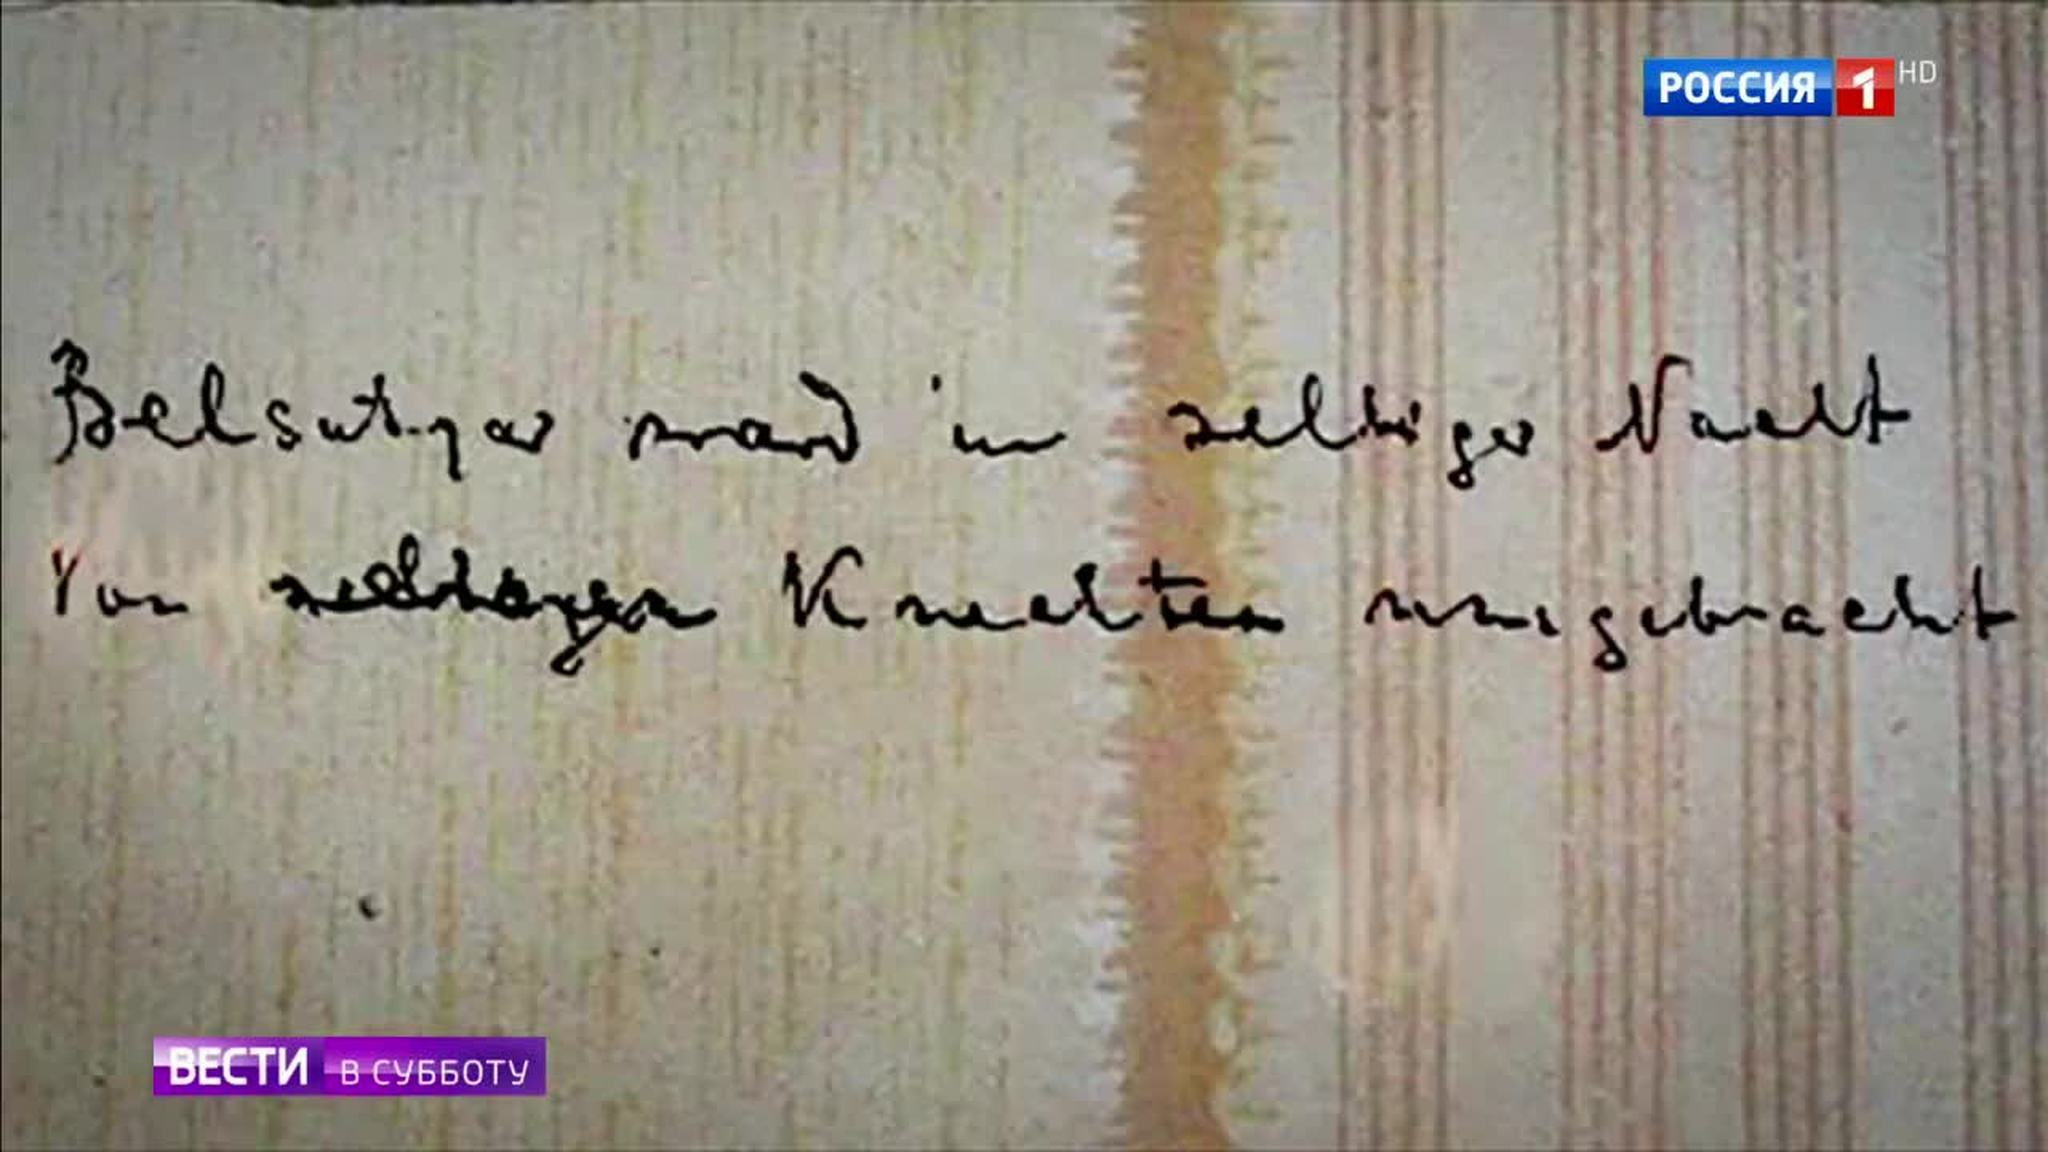 РОССИЯ 1 HD
Belsatzar ward in selbiger Nacht
Von selbigen Knechten umgebracht
ВЕСТИ В СУББОТУ